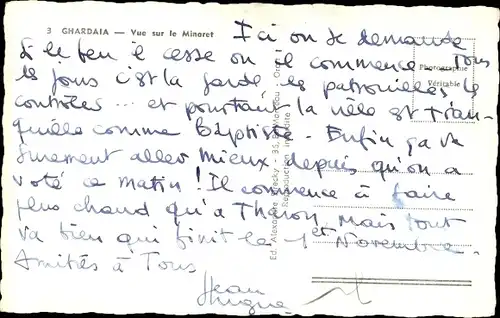 3 GHARDAIA — Vue sur le Minaret
Ici on se demande
si le feu il cesse ou il commence. Tous
les jours c'est la garde les patrouilles le
contrôles ... et pourtant la ville est tran-
quille comme Baptiste - Enfin ça va
surement aller mieux depuis qu'on a
voté ce matin ! Il commence à faire
plus chaud qu'à Tharon, mais tout
va bien qui finit le 1er Novembre.
Amitiés à Tous
Jean
Photographie
Véritable
Reproduction interdite